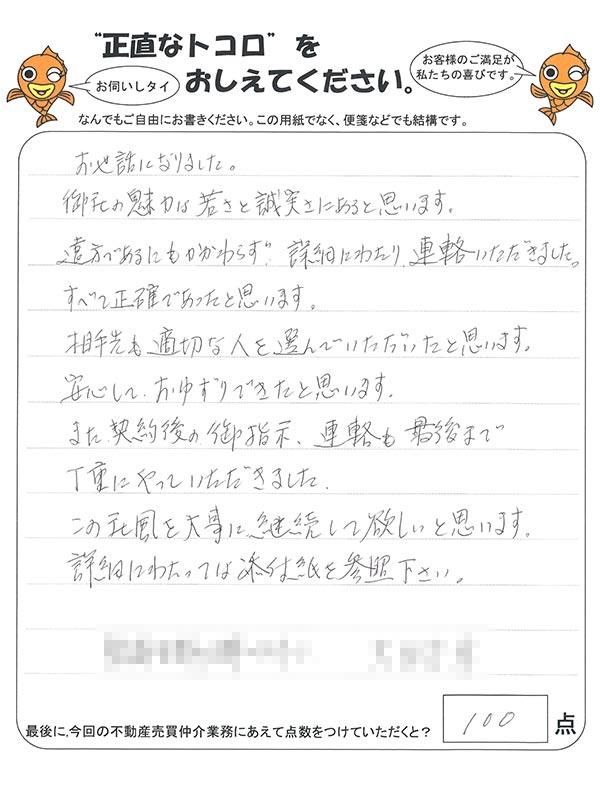 "正直なトコロ"を
おしえてください。
お伺いしタイ
お客様のご満足が
私たちの喜びです。
なんでもご自由にお書きください。この用紙でなく、便箋などでも結構です。
お世話になりました。
御社の魅力は若さと誠実さにあると思います。
遠方であるにもかかわらず、詳細にわたり、連絡いただきました。
すべて正確であったと思います。
相手先も適切な人を選んでいただいたと思います。
安心して、おゆずりできたと思います。
また、契約後の御指示、連絡も最後まで
丁重にやっていただきました。
この社風を大事に継続して欲しいと思います。
詳細にわたっては添付紙を参照下さい。
最後に、今回の不動産売買仲介業務にあえて点数をつけていただくと?
100
点